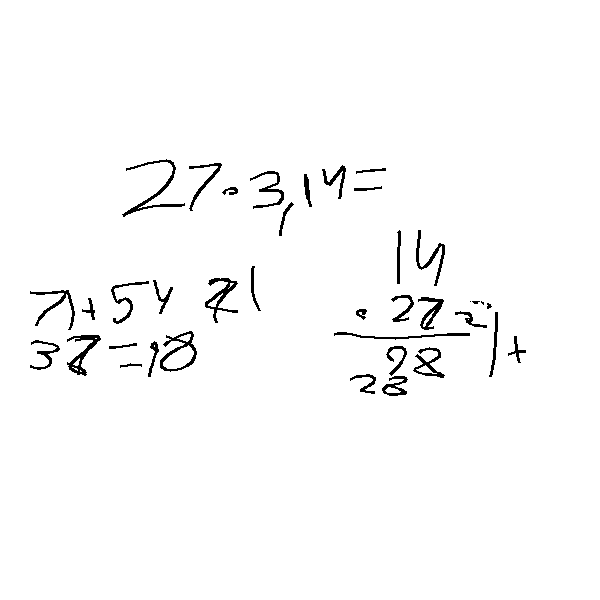 27·3,14=
71+54 21
37=18
14
·27=
98
28 +